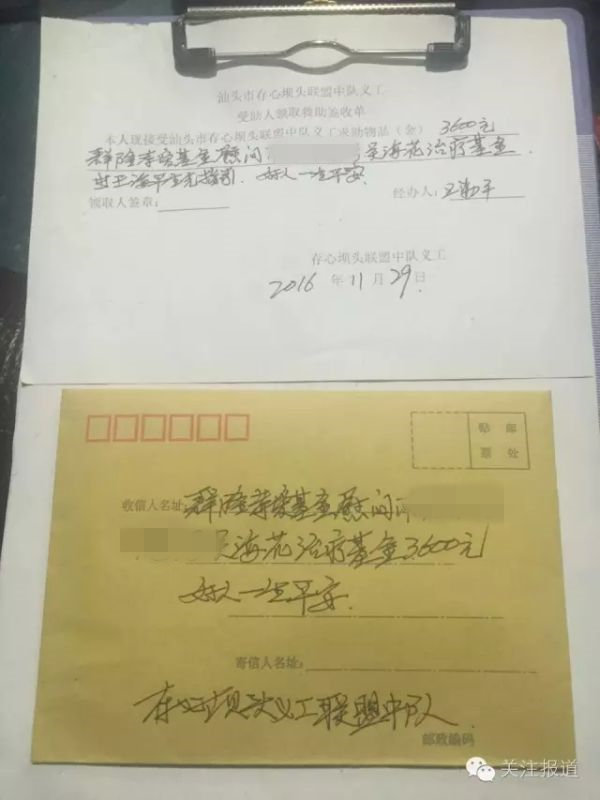 汕头市存心坝头联盟中队义工
受助人领取救助签收单
本人现接受汕头市存心坝头联盟中队义工求助物品（金）3600元
群隆孝爱基金慰问 吴海花治疗基金.
好人一生平安.
领取人签章： 经办人：
存心坝头联盟中队义工
2016 年 11 月 29 日
贴 邮
票 处
收信人名址：群隆孝爱基金慰问
吴海花治疗基金3600元
好人一生平安.
寄信人名址：
存心坝头义工联盟中队
邮政编码
关注报道